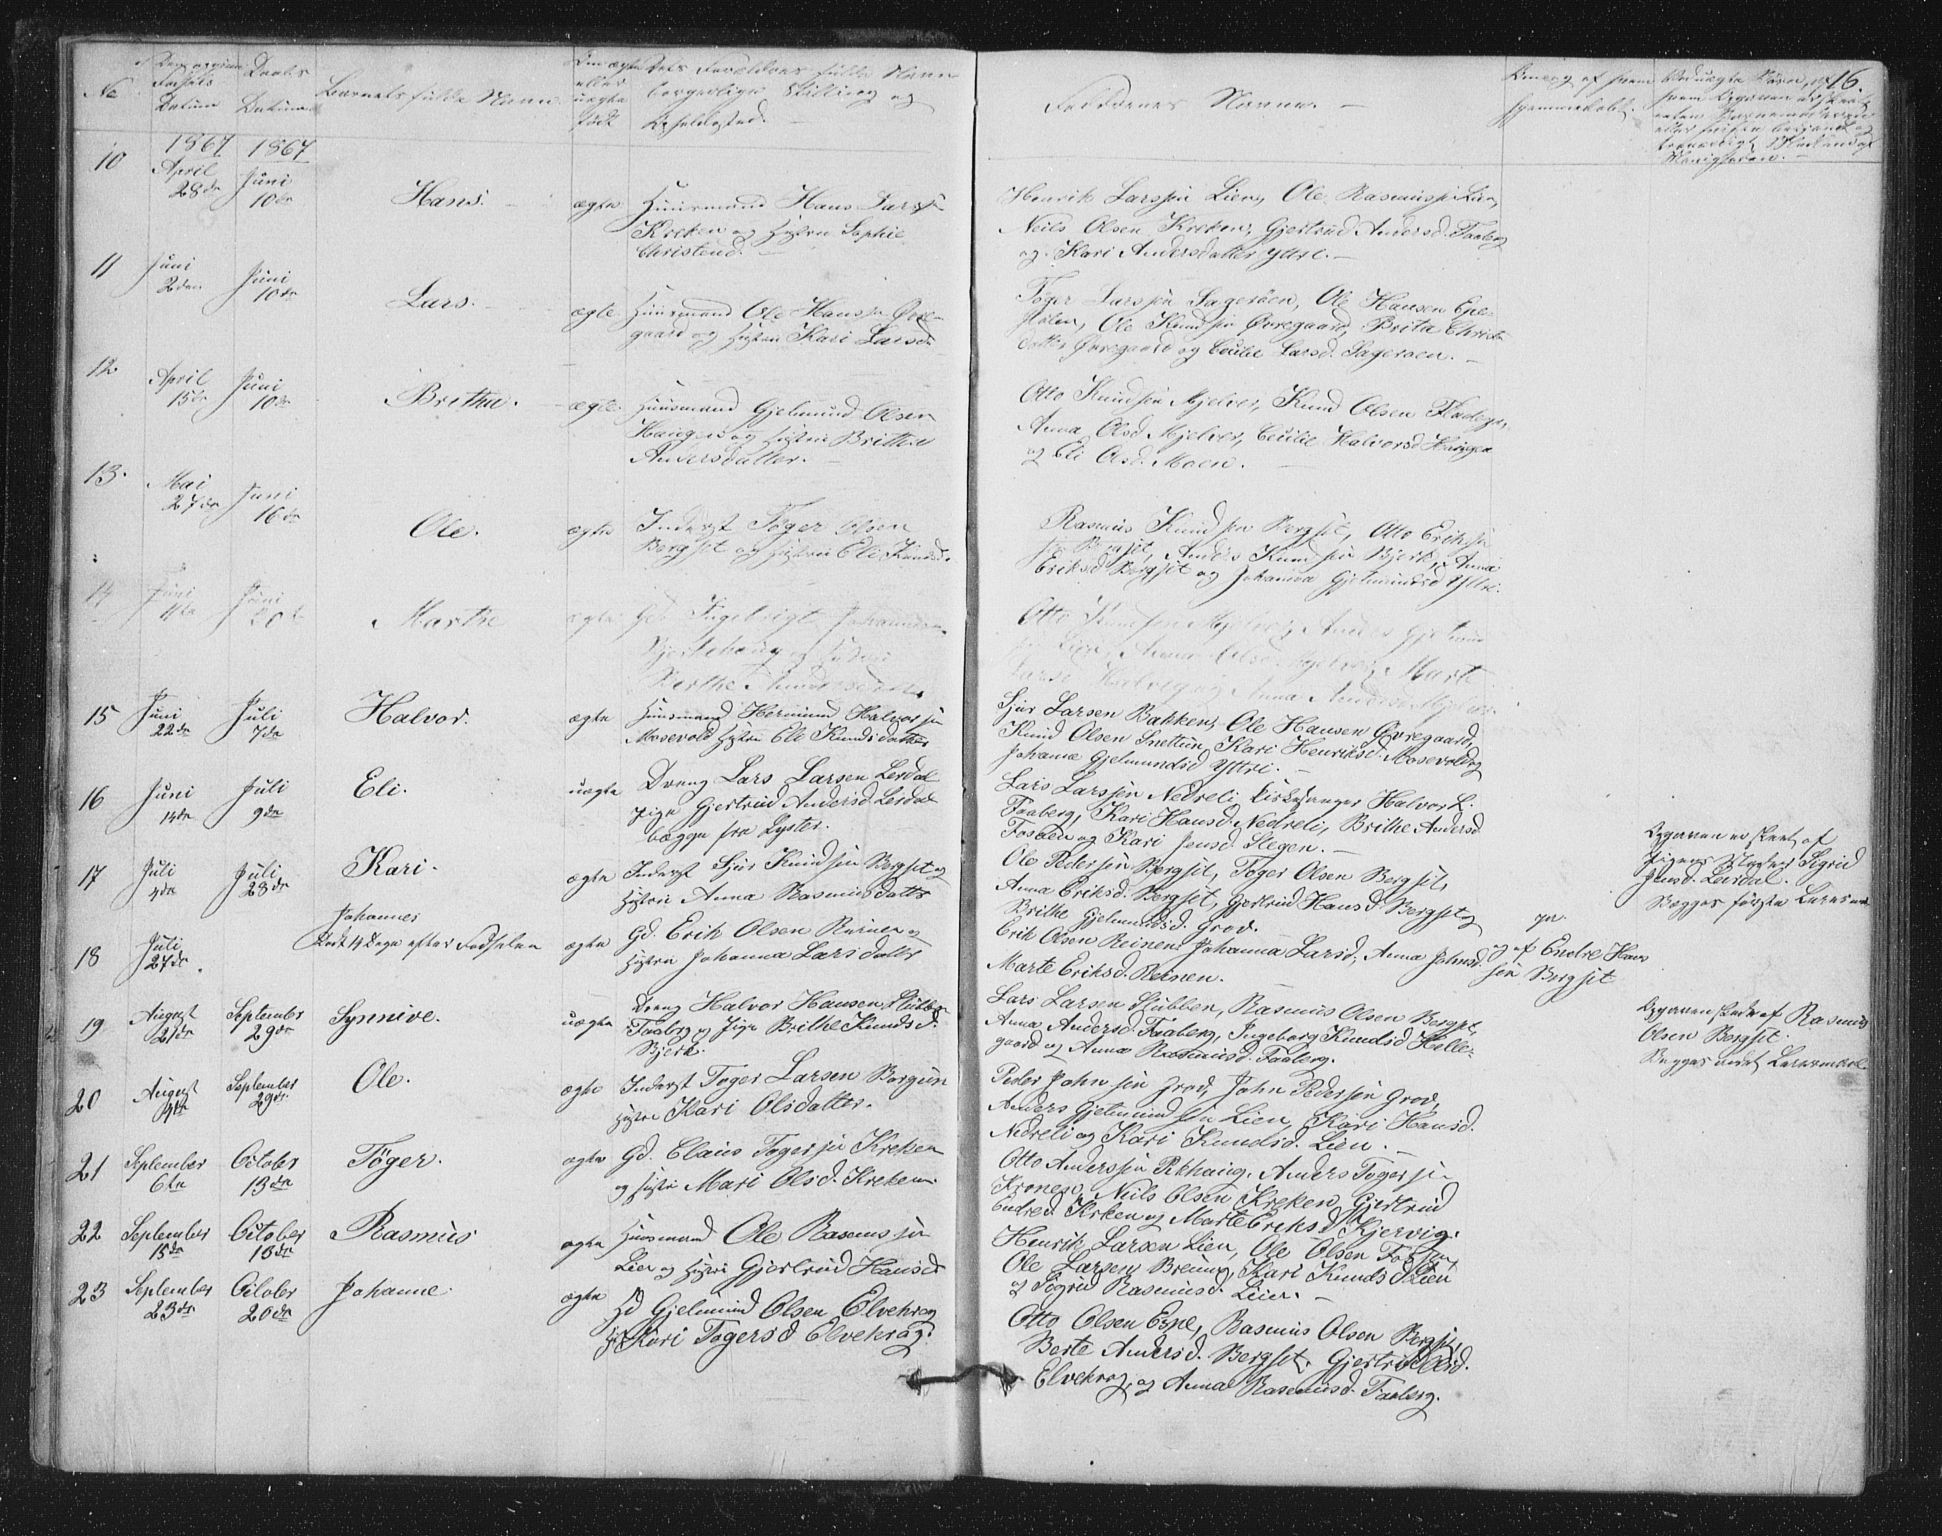 No
Fødsels
Datum
Daabs
Datum
Barnets fulde Navn
ægte
eller
uægte
født
Forældres fulde Navn
borgerlige Stilling og
Opholdssted.
Faddernes Navne. —
16.
1867 1867
10
April
28de
Juni
10de
Hans.
ægte
Huusmand Hans Larss.
Kreken og Hustru Sophie
Christend.
Henrik Larssøn Lien, Ole Rasmussøn Lien,
Neils Olsen Kreken, Gjertrud Andersd. Faaberg
og Kari Andersdatter Yttri. —
11
Juni
2den
Juni
10de
Lars.
ægte
Huusmand Ole Hanssøn Øvre-
gaard og Hustru Kari Larsd.
Tøger Larssøn Sagerøen, Ole Hansen
Ole Knudsøn Øvregaard, Brita Christ
datter Øvregaard og Cecilie Larsd. Sagerøen. —
12
April
15de
Juni
10de
Brithe.
ægte
Huusmand Gjelmund Olsen
Haugen og Hustru Brithe
Andersdatter. —
Otto Knudsøn Mjelver, Knud Olsen
Anna Olsd. Mjelver, Cecilie Halvorsd. Haugen
og Eli Olsd. Moen. —
13.
Mai
27de
Juni
16de
Ole.
ægte
Inderst Tøger Olsen
Bergset og Hustru Eli Knudsd.
Rasmus Knudsøn Bergset, Otto Erikss.
Bergset, Anders Knudsøn Bjerk, Anna
Eriksd. Bergset og Johanna Gjelmundsd. Yttri.
14
Juni
Juni
Marthe
ægte
Gd. Ingebrigt Johannesen
og Hustru
Berthe
Otto Knudsøn Mjelver, Anders Gjelmund
Lien, Anna Olsd. Mjelver, Marte
Larsd. og Anna
15
Juni
22de
Juli
7de
Halvor.
ægte
Huusmand Hermund Halvorsøn
Mosevold Hustru Eli Knudsdatter
Sjur Larsen Bakken, Ole Hansen Øvregaard,
Knud Olsen Snettun, Kari Henriksd. Mosevold og
Johanne Gjelmundsd. Yttri. —
16
Juni
14de
Juli
9de
Eli.
uægte
Dreng Lars Larsen Lerdal
Pige Gjertrud Andersd. Lerdal
begge fra Lyster.
Lars Larssøn Nedreli, Kirkesanger Halvor L.
Faaberg, Kari Hansd. Nedreli, Brithe Andersd.
Fossen og Kari Jensd. Slegen. —
Opgaven er skeet af
Pigens Moder Sigrid
Jensd. Lerdal.
Begges første Leiermaal
17
Juli
4de
Juli
28de
Kari.
ægte
Inderst Sjur Knudsøn Bergset og
Hustru Anna Rasmusdatter
Ole Pederssøn Bergset, Tøger Olsen Bergset,
Anna Eriksd. Bergset, Gjertrud Hansd. Bergset og
Brithe Gjelmundsd. Grov.
18
Juli
27de
Johannes
Død 14 Dage efter Fødselen
ægte
Gd. Erik Olsen Reinen og
Hustru Johanna Larsdatter
Erik Olsen Reinen, Johanna Larsd., Anna Johnsd.
Marte Eriksd. Reinen.
ja.
og af Endre Hans
søn Bergset
19
August
21de
September
29de
Synnive.
uægte
Dreng Halvor Hansen Stubben
Faaberg og Pige Brithe Knudsd.
Bjerk.
Lars Larsen Stubben, Rasmus Olsen Bergset,
Anna Andersd. Faaberg, Ingeborg Knudsd. Helle-
gaard og Anna Rasmusd. Faaberg.
Opgaven skede af Rasmus
Olsen Bergset.
Begges Leiermaal
20
August
4de
September
29de
Ole.
ægte
Inderst Tøger Larsen Borgun
Hustru Kari Olsdatter.
Peder Johnsøn Grov, John Pedersøn Grov,
Anders Gjelmundsøn Lien, Kari Hansd.
Nedreli og Kari Knudsd. Lien. —
21
September
6te
October
13de
Tøger.
ægte
Gd. Claus Tøgersøn Kreken
og Hustru Mari Olsd. Kreken.
Otto Anderssøn Rikhaug, Anders Tøgersøn
Kronen, Neils Olsen Kreken, Gjertrud
Endred. Kreken og Marte Eriksd. Kjervig.
22
September
15de
October
13de
Rasmus
ægte
Huusmand Ole Rasmussøn
Lien og Hustru Gjertrud Hansd.
Henrik Larsen Lien, Ole Olsen
Ole Larsen Breum, Kari Knudsd. Lien
og Sigrid Rasmusd. Lien. —
23
September
23de
October
20de
Johanne
ægte
Gd. Gjelmund Olsen Elvekrog
H. Kari Tøgersd. Elvekrog.
Otto Olsen Espe, Rasmus Olsen Bergset,
Berte Andersd. Bergset, Gjertrud Olsd.
Elvekrog, og Anna Rasmusd. Faaberg.